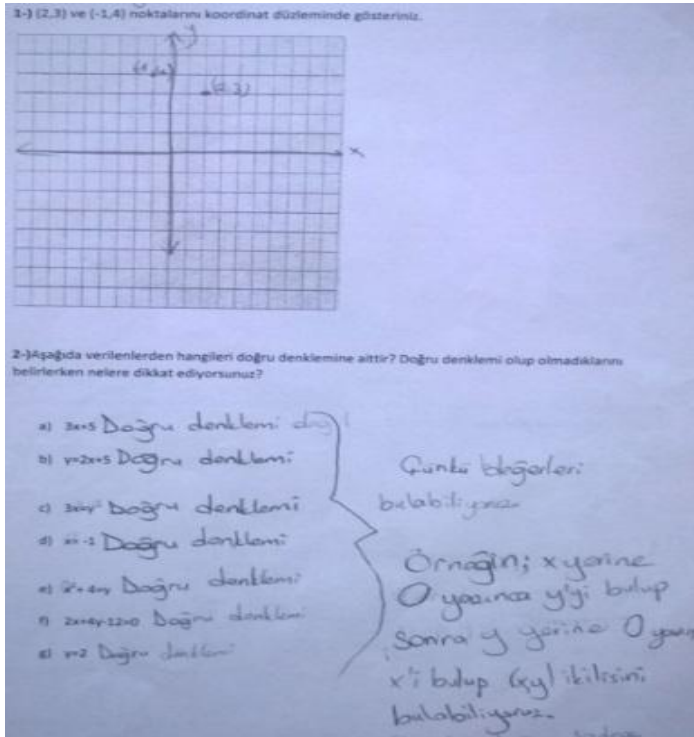 1-) (2,3) ve (-1,4) noktalarını koordinat düzleminde gösteriniz.
y
(2,3)
x
2-)Aşağıda verilenlerden hangileri doğru denklemine aittir? Doğru denklemi olup olmadıklarını
belirlerken nelere dikkat ediyorsunuz?
a) 3x+5 Doğru denklemi değil
b) y=2x+5 Doğru denklemi
c) Doğru denklemi
d) Doğru denklemi
e) Doğru denklemi
f) 2x+6y-12=0 Doğru denklemi
g) y=2 Doğru denklemi
Çünkü değerleri
bulabiliyoruz
Örneğin; x yerine
0 yazınca y'yi bulup
sonra y yerine 0
x'i bulup (x,y) ikilisini
bulabiliyoruz.